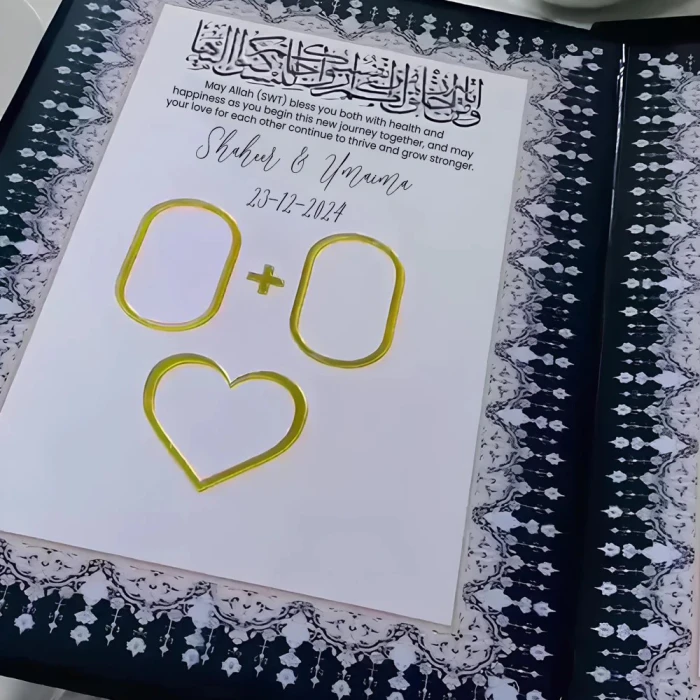 May Allah (SWT) bless you both with health and
happiness as you begin this new journey together, and may
your love for each other continue to thrive and grow stronger.
Shaheer & Umaima
23-12-2024